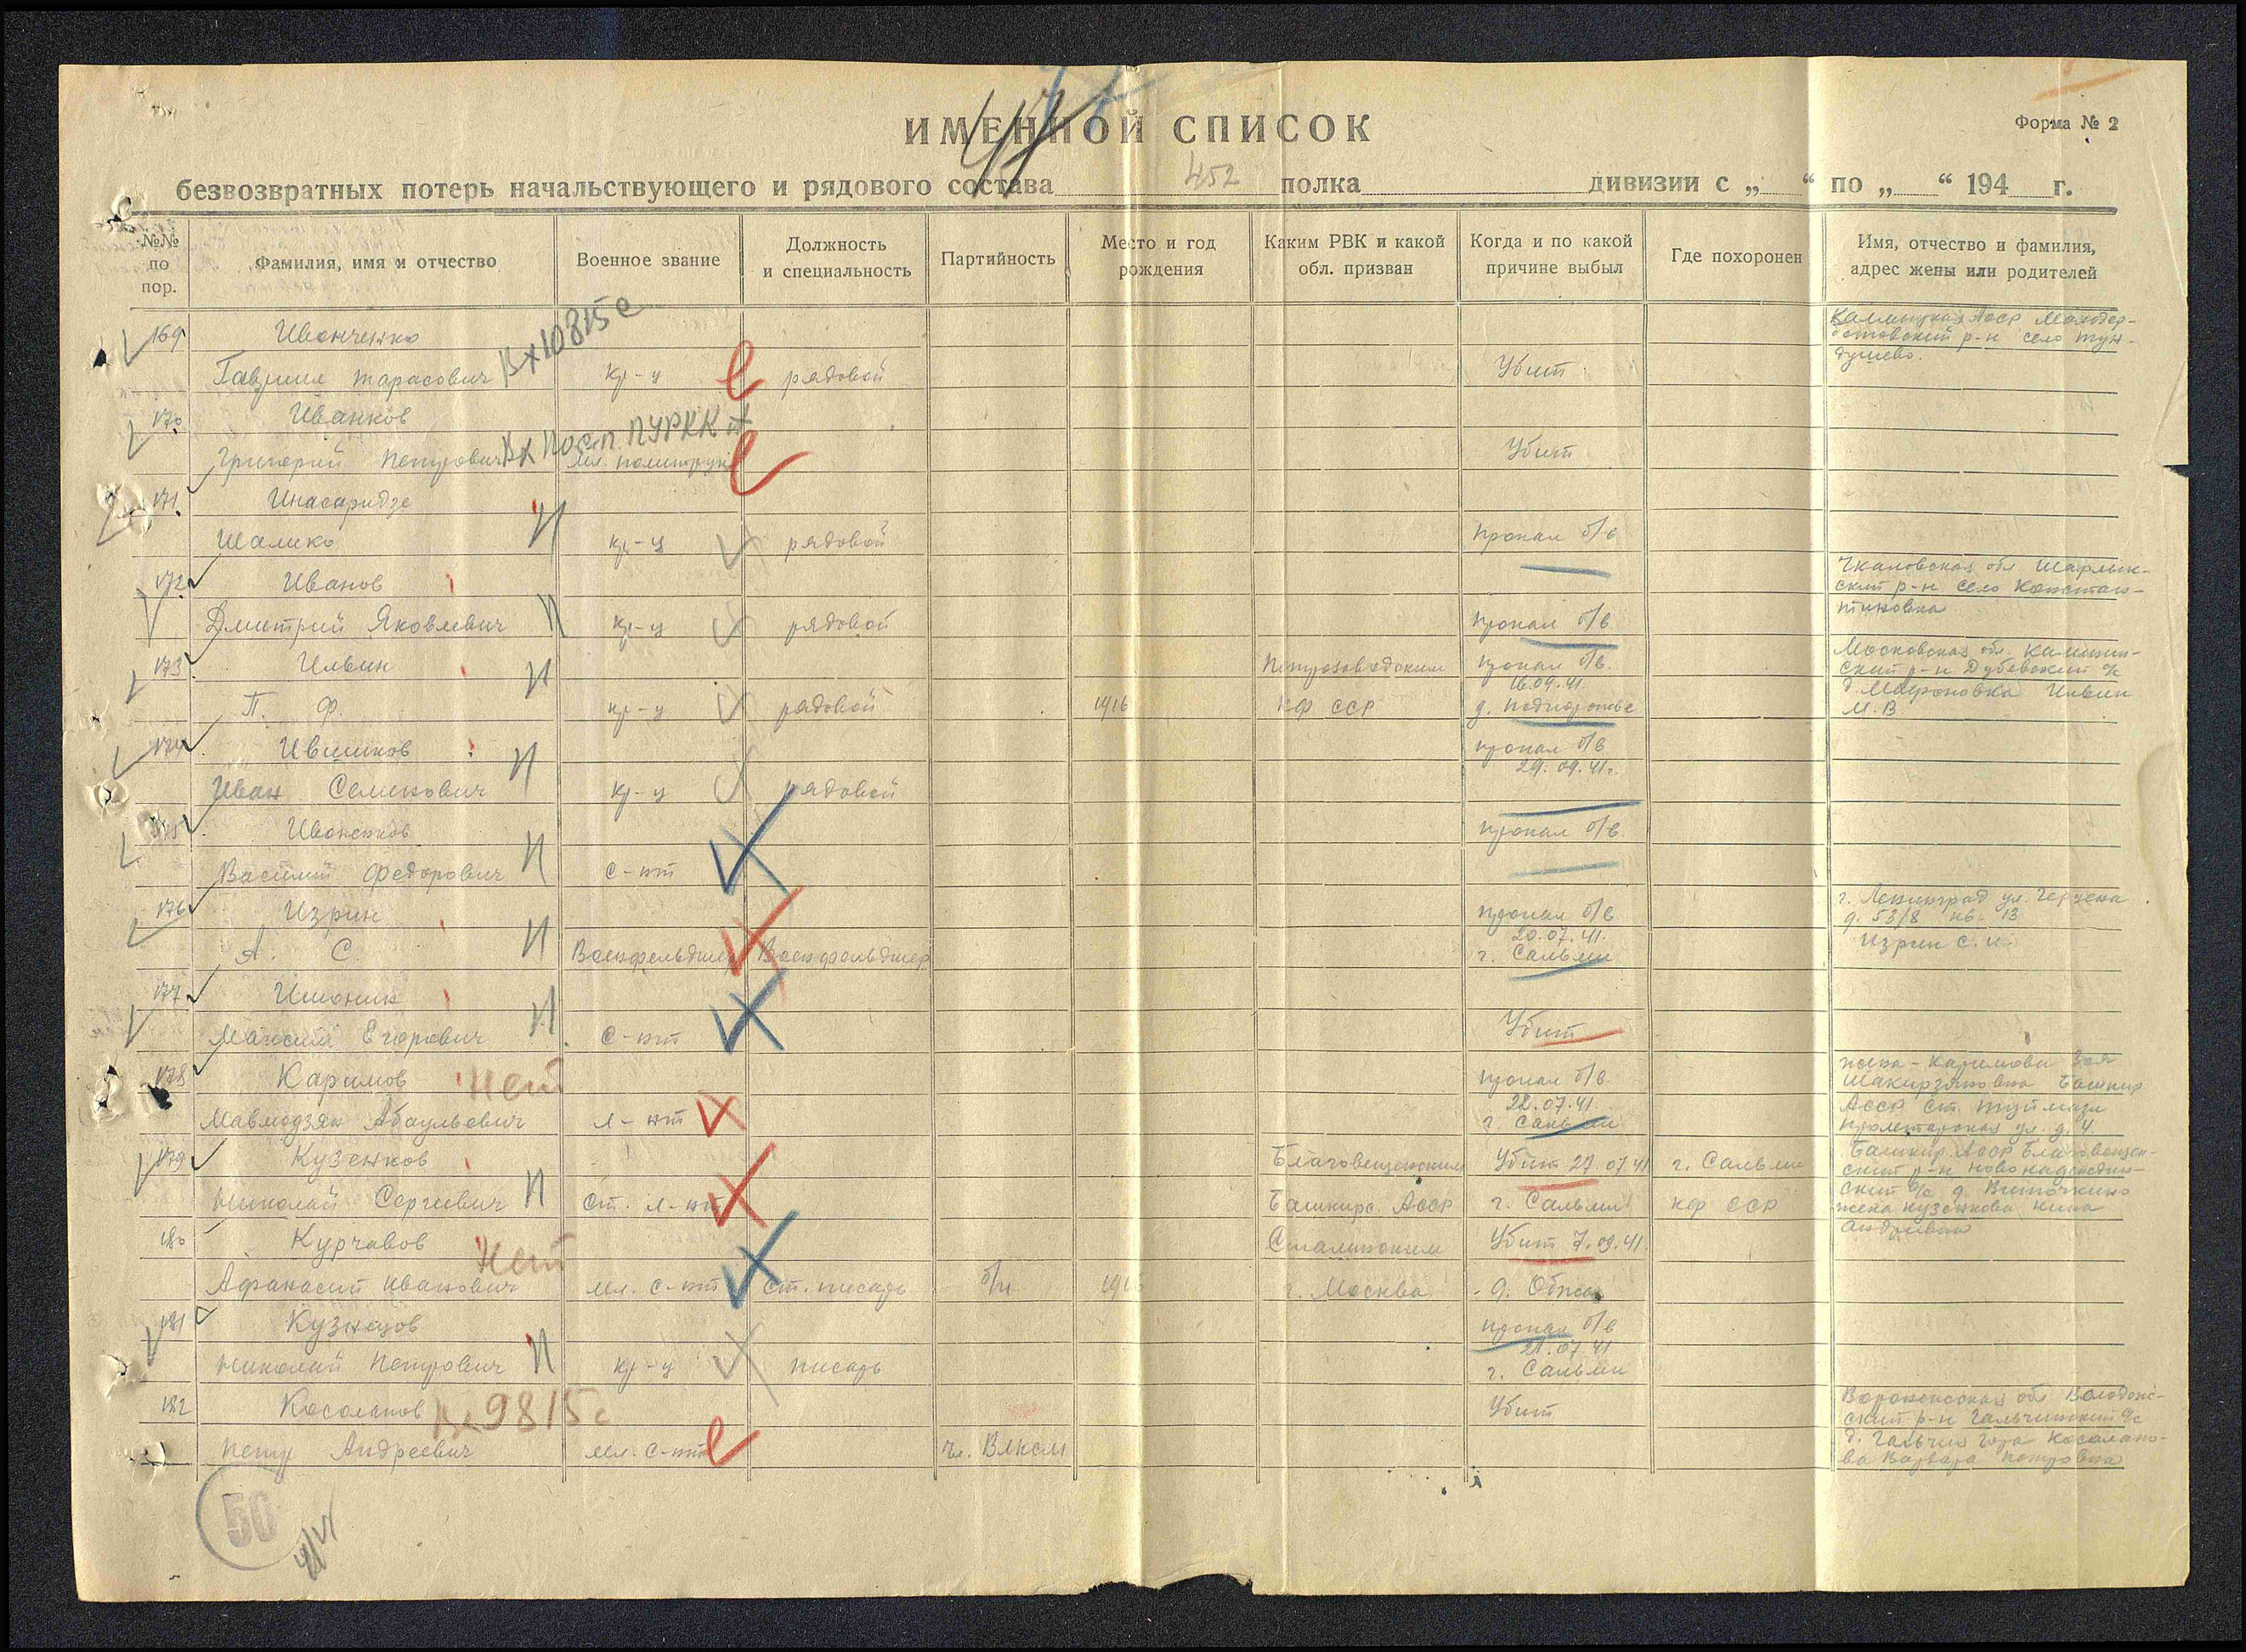 ИМЕННОЙ СПИСОК
Форма № 2
безвозвратных потерь начальствующего и рядового состава 452 полка дивизии с „ “ по „ “ 194 г.
№№ по пор.
Фамилия, имя и отчество
Военное звание
Должность и специальность
Партийность
Место и год рождения
Каким РВК и какой обл. призван
Когда и по какой причине выбыл
Где похоронен
Имя, отчество и фамилия, адрес жены или родителей
169 Иванченко
Вх 10815с
Гавриил Тарасович кр-ц рядовой Убит
Калмыцкая АССР
р-н село
170 Иванков
Григорий Петрович мл. политрук Убит
ПУРКК
171 Инасаридзе
Шалико кр-ц рядовой Пропал б/в
172 Иванов
Дмитрий Яковлевич кр-ц рядовой Пропал б/в
Чкаловская обл Шарлык-
ский р-н село Констан-
тиновка
173 Ильин
П. Ф. кр-ц рядовой 1916
Петрозаводским
КФ ССР
пропал б/в.
16.09.41.
д. Подпорожье
Московская обл.
ский р-н
Ильин
М. В.
174 Ившиков
Иван Семенович кр-ц рядовой
пропал б/в
29.09.41г.
175 Иваненков
Василий Федорович с-нт
пропал б/в.
176 Изрин
А. С. Военфельдшер Военфельдшер
пропал б/в
20.07.41.
г. Сальми
г. Ленинград ул. Герцена
д. 53/8 кв. 13
Изрин С. И.
177 Ишонин
Максим Егорович с-нт Убит
178 Каримов нет
Абдульевич л-нт
пропал б/в.
22.07.41.
г. Сальми
жена - Каримова Зоя
Шакирзяновна Башкир
АССР ст. Туймазы
Пролетарская ул. д. 4
179 Кузенков
Николай Сергеевич ст. л-нт
Благовещенским
Башкирс. АССР
Убит 27.07.41
г. Сальми
г. Сальми
КФ ССР
Башкир. АССР Благовещен-
ский р-н
жена Кузенкова Нина
Андреевна
180 Курчавов нет
Афанасий Иванович мл. с-нт ст. писарь б/п
Сталинским
г. Москва
Убит 7.09.41.
д. Обжа
181 Кузнецов
Николай Петрович кр-ц писарь
пропал б/в
21.07.41
г. Сальми
182 Косолапов
Вх 9815с
Петр Андреевич мл. с-нт чл. ВЛКСМ
Убит
Воронежская обл
Косолапо-
ва Варвара Петровна
50